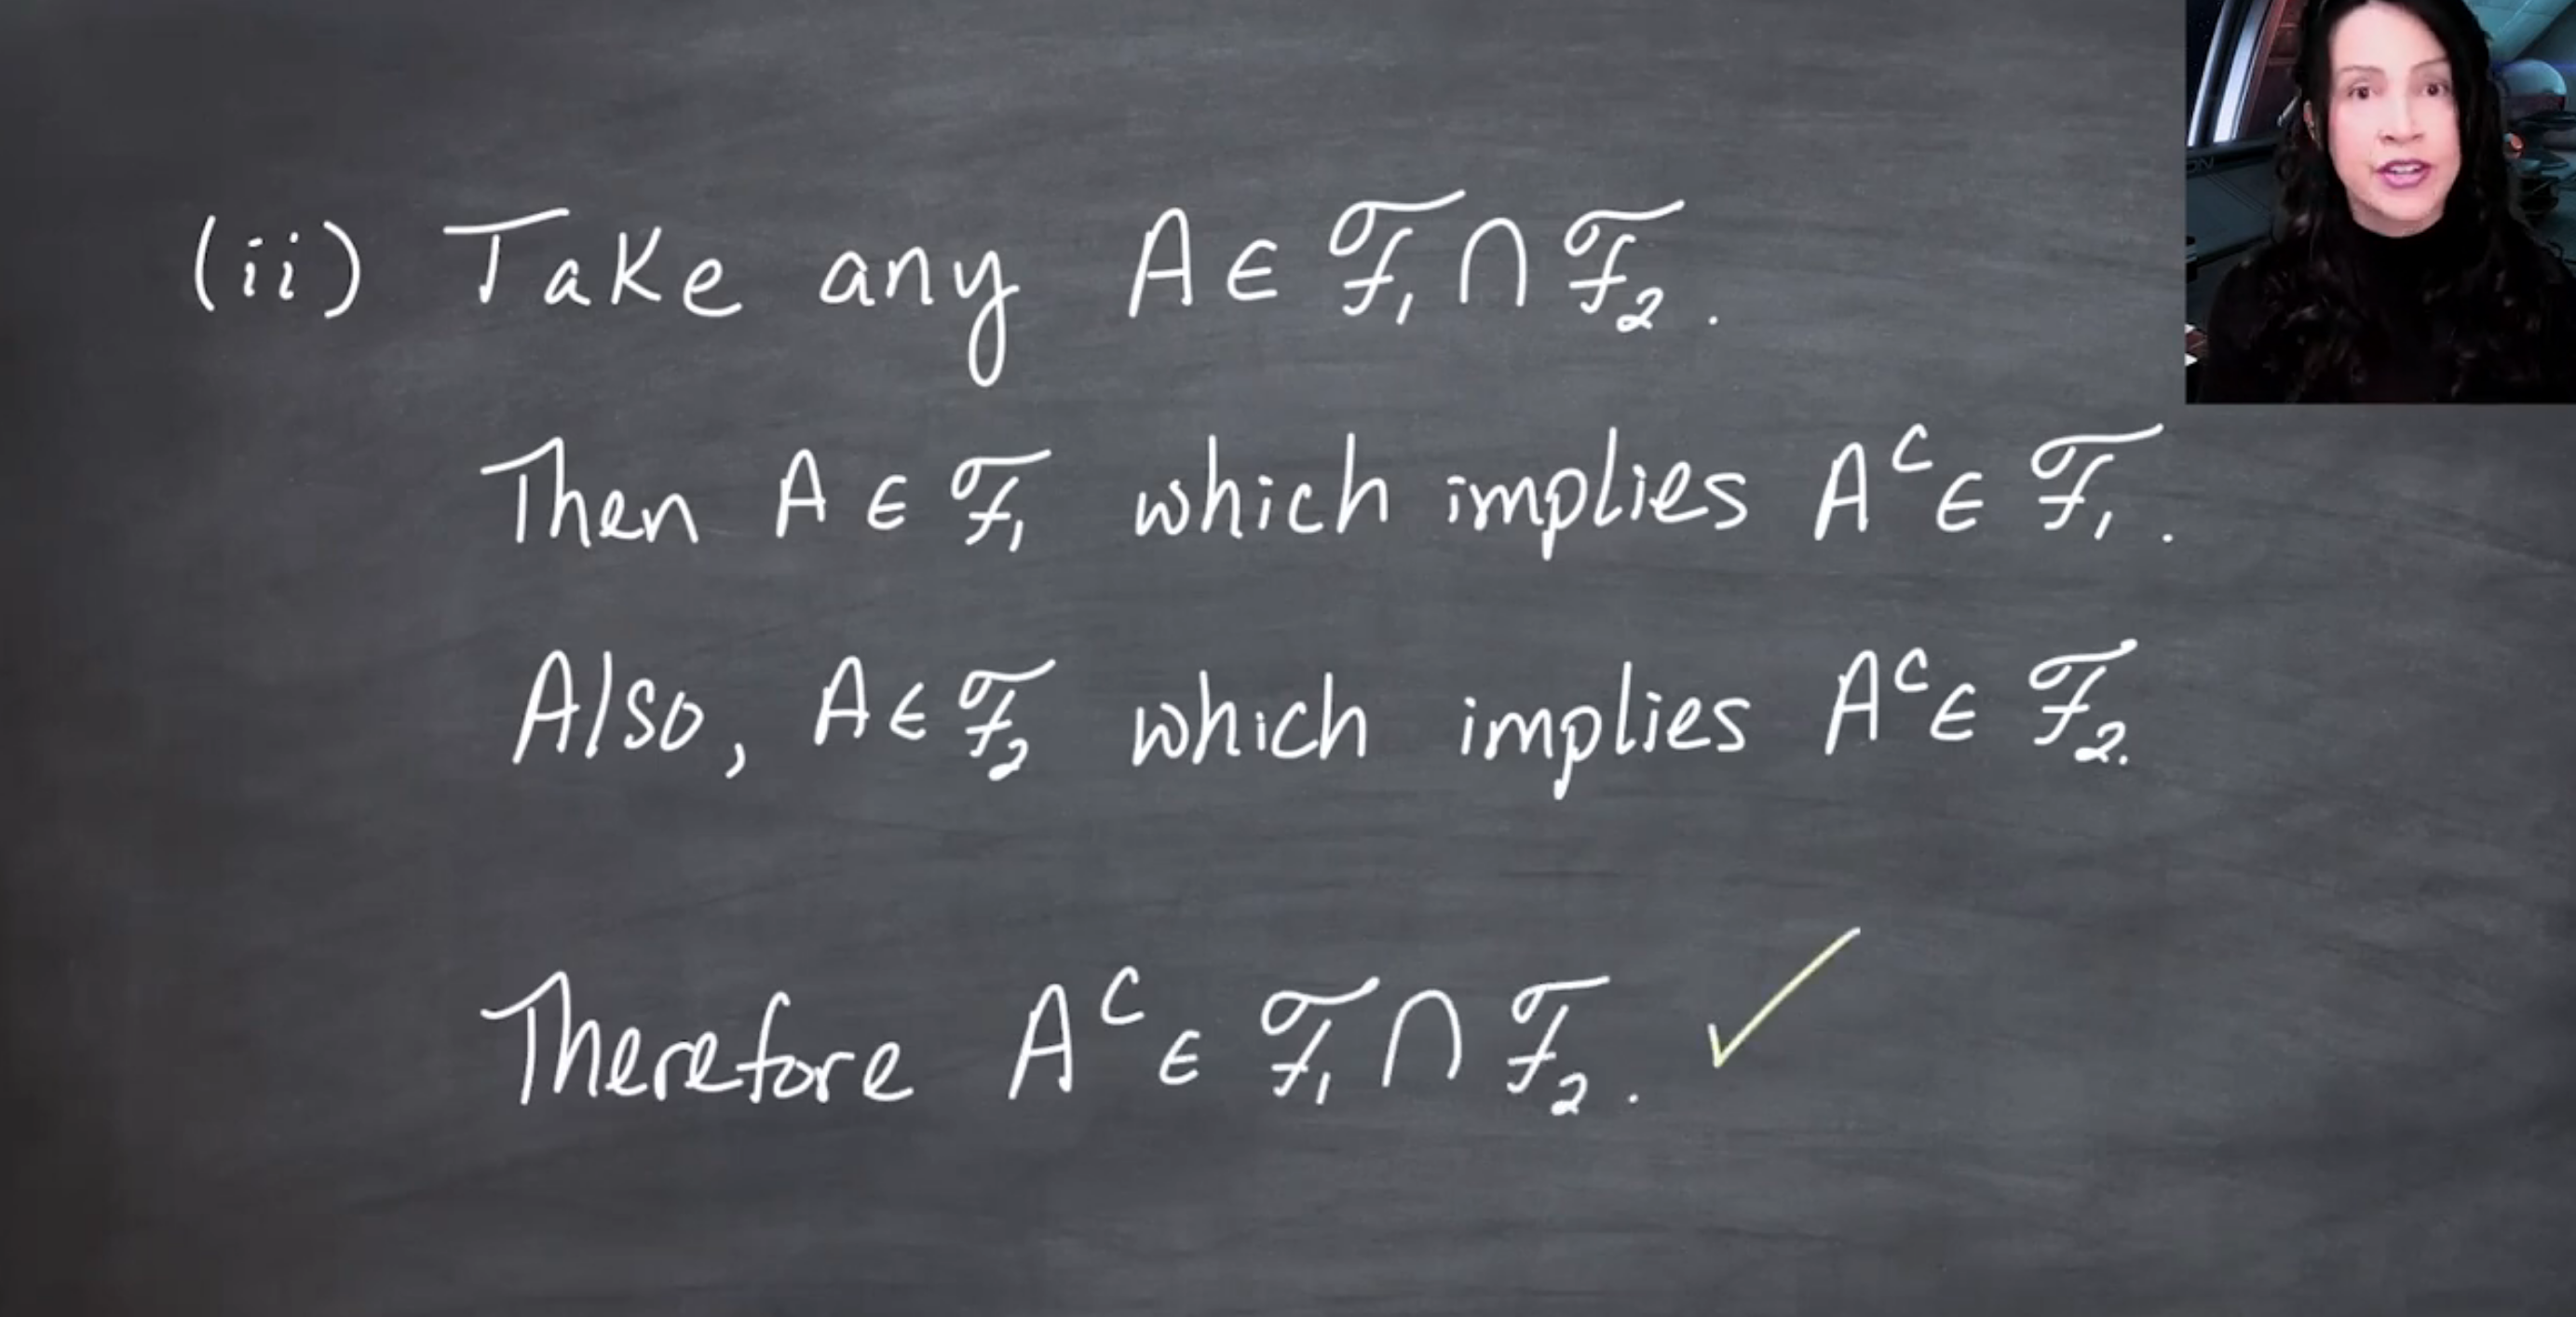 (ii) Take any A ∈ ℱ₁ ∩ ℱ₂.
Then A ∈ ℱ₁ which implies Aᶜ ∈ ℱ₁.
Also, A ∈ ℱ₂ which implies Aᶜ ∈ ℱ₂.
Therefore Aᶜ ∈ ℱ₁ ∩ ℱ₂. ✓